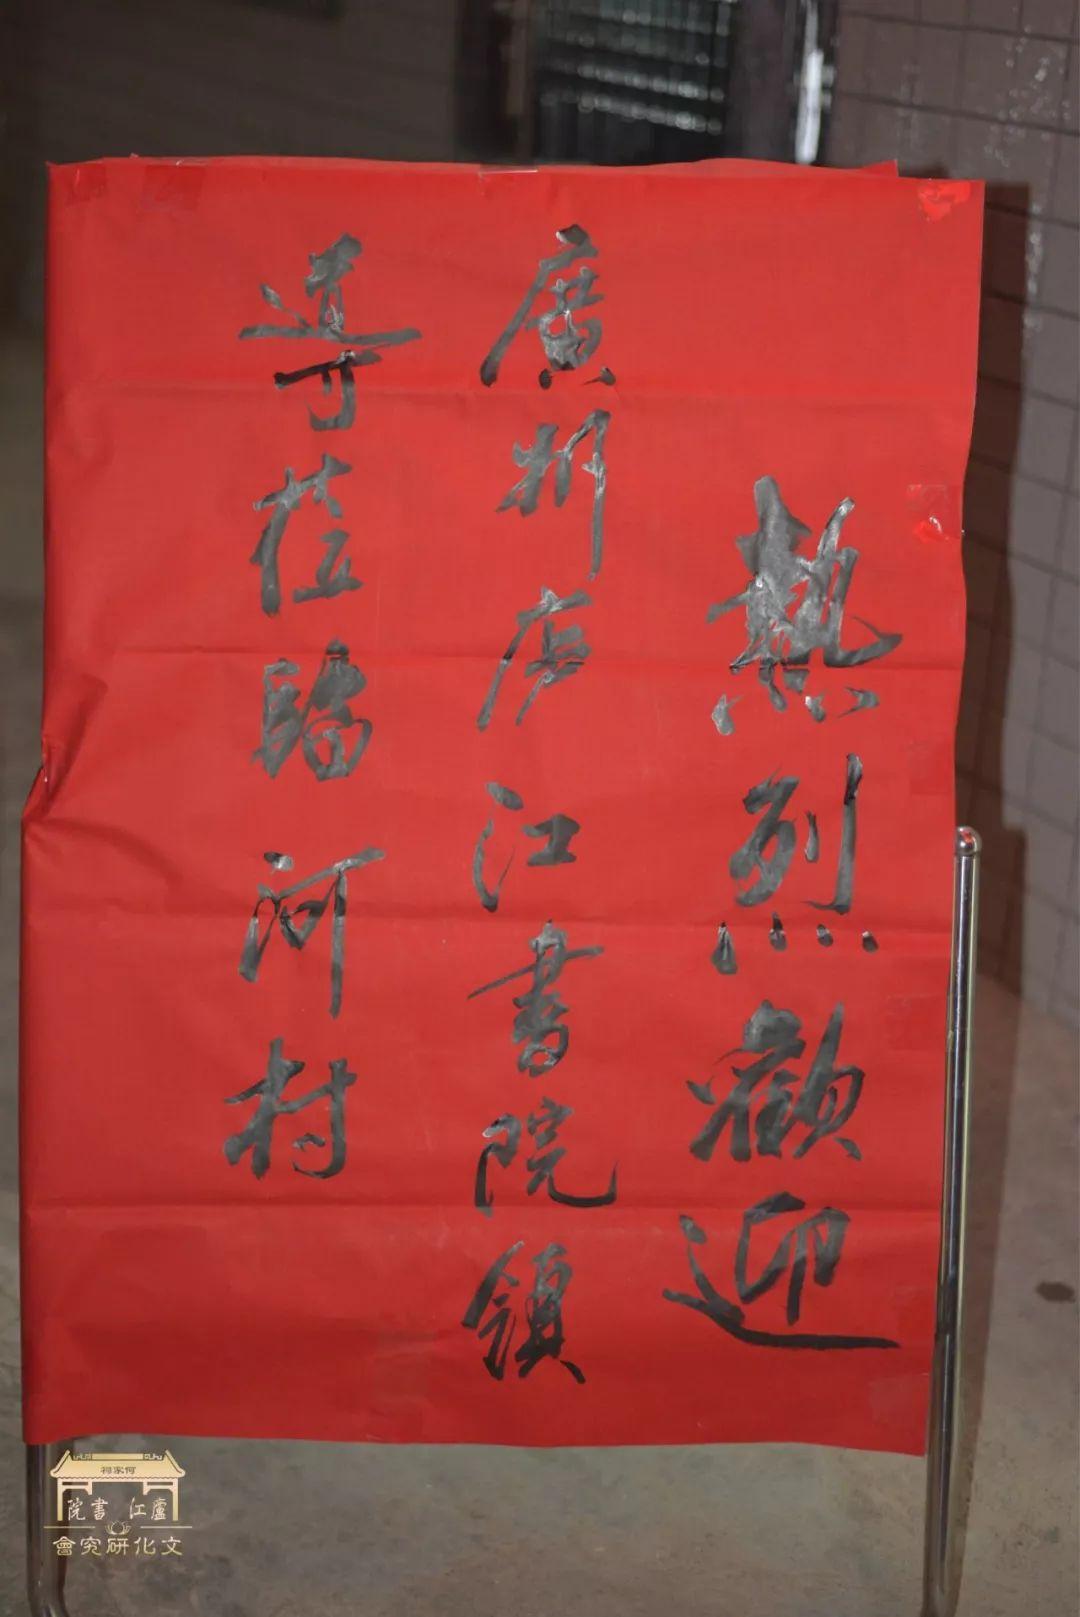 熱烈歡迎
廣州庐江書院領
導莅臨河村
何家祠
廬江書院
文化研究會